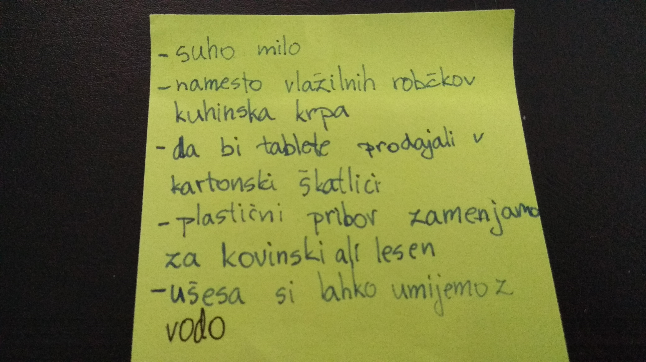 - suho milo
- namesto vlažilnih robčkov
kuhinska krpa
- da bi tablete prodajali v
kartonski škatlici
- plastični pribor zamenjamo
za kovinski ali lesen
- ušesa si lahko umijemo z
vodo